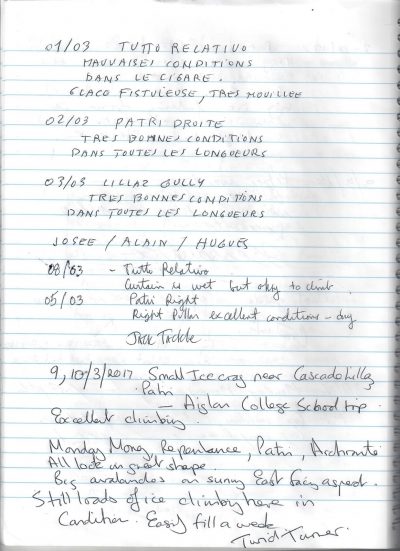 01/03 TUTTO RELATIVO
MAUVAISES CONDITIONS
DANS LE CIGARE.
GLACE FISTULEUSE, TRES MOUILLEE
02/03 PATRI DROITE
TRES BONNES CONDITIONS
DANS TOUTES LES LONGUEURS
03/03 LILLAZ GULLY
TRES BONNES CONDITIONS
DANS TOUTES LES LONGUEURS
JOSEE / ALAIN / HUGUES
08/03 - Tutto Relativo
Curtain is wet but okay to climb
05/03 Patri Right
Right Pillar excellent conditions - dry
JACK
9, 10/3/2017 Small Ice crag near Cascade Lillaz
Patri
- Aiglon College School trip.
Excellent climbing.
Monday Money, Repentance, Patri,
All look in great shape.
Big avalanches on sunny East facing aspect.
Still loads of ice climbing here in
Condition. Easily fill a week
Turner.